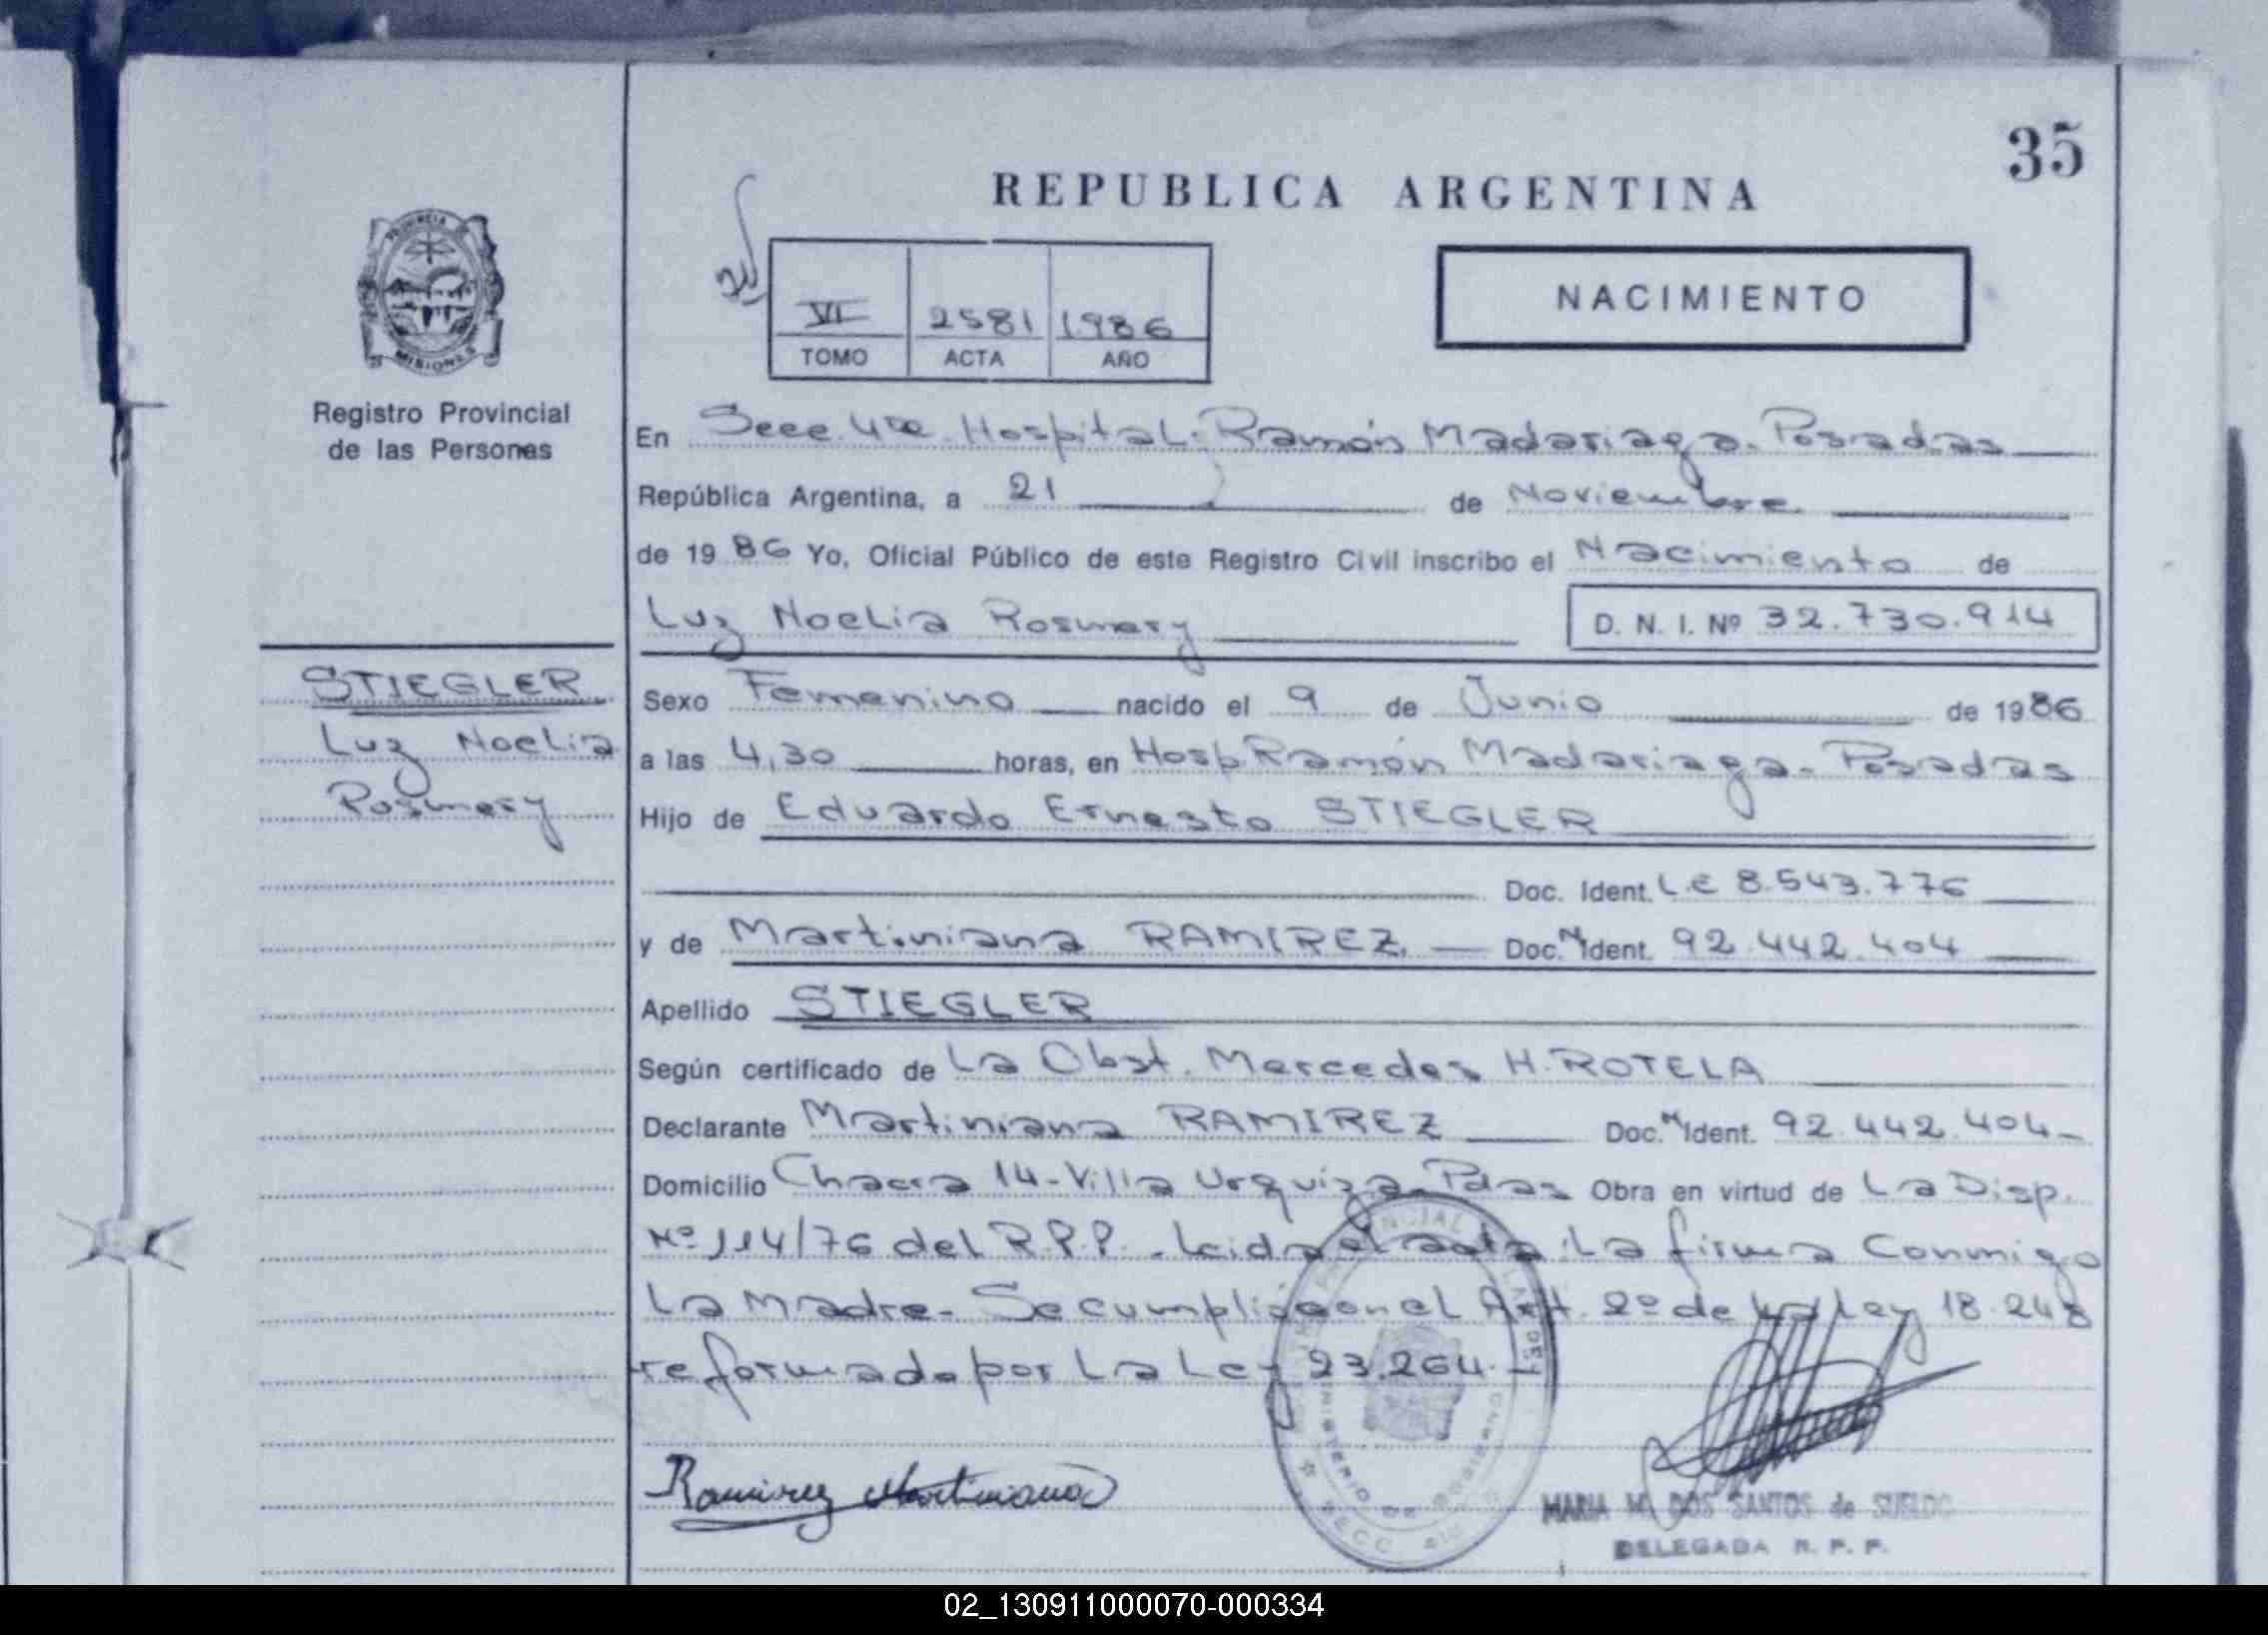 35
REPUBLICA ARGENTINA
PROVINCIA DE
MISIONES
VI 2581 1986
TOMO ACTA AÑO
NACIMIENTO
Registro Provincial
de las Personas
En Secc. 4ta. Hospital. Ramón Madariaga. Posadas
República Argentina, a 21 de Noviembre
de 1986 Yo, Oficial Público de este Registro Civil inscribo el Nacimiento de
Luz Noelia Rosmery D. N. I. Nº 32.730.914
STIEGLER
Luz Noelia
Rosmery
Sexo Femenino nacido el 9 de Junio de 1986
a las 4,30 horas, en Hosp Ramón Madariaga. Posadas
Hijo de Eduardo Ernesto STIEGLER
Doc. Ident. L.E 8.543.776
y de Martiniana RAMIREZ. Doc. N Ident. 92.442.404
Apellido STIEGLER
Según certificado de La Obst. Mercedes H. ROTELA
Declarante Martiniana RAMIREZ Doc. N Ident. 92.442.404-
Domicilio Chacra 14-Villa Urquiza-Pdas Obra en virtud de La Disp.
Nº 114/76 del R.P.P. Leida el acta La firma Conmigo
La Madre- Se cumplió con el Art. 2º de La Ley 18.248
reformado por La Ley 23.264.-
Ramirez Martiniana
MINISTERIO DE GOBIERNO
SECC.
MARIA M. DOS SANTOS de SUELDO
DELEGADA R. P. P.
02_130911000070-000334